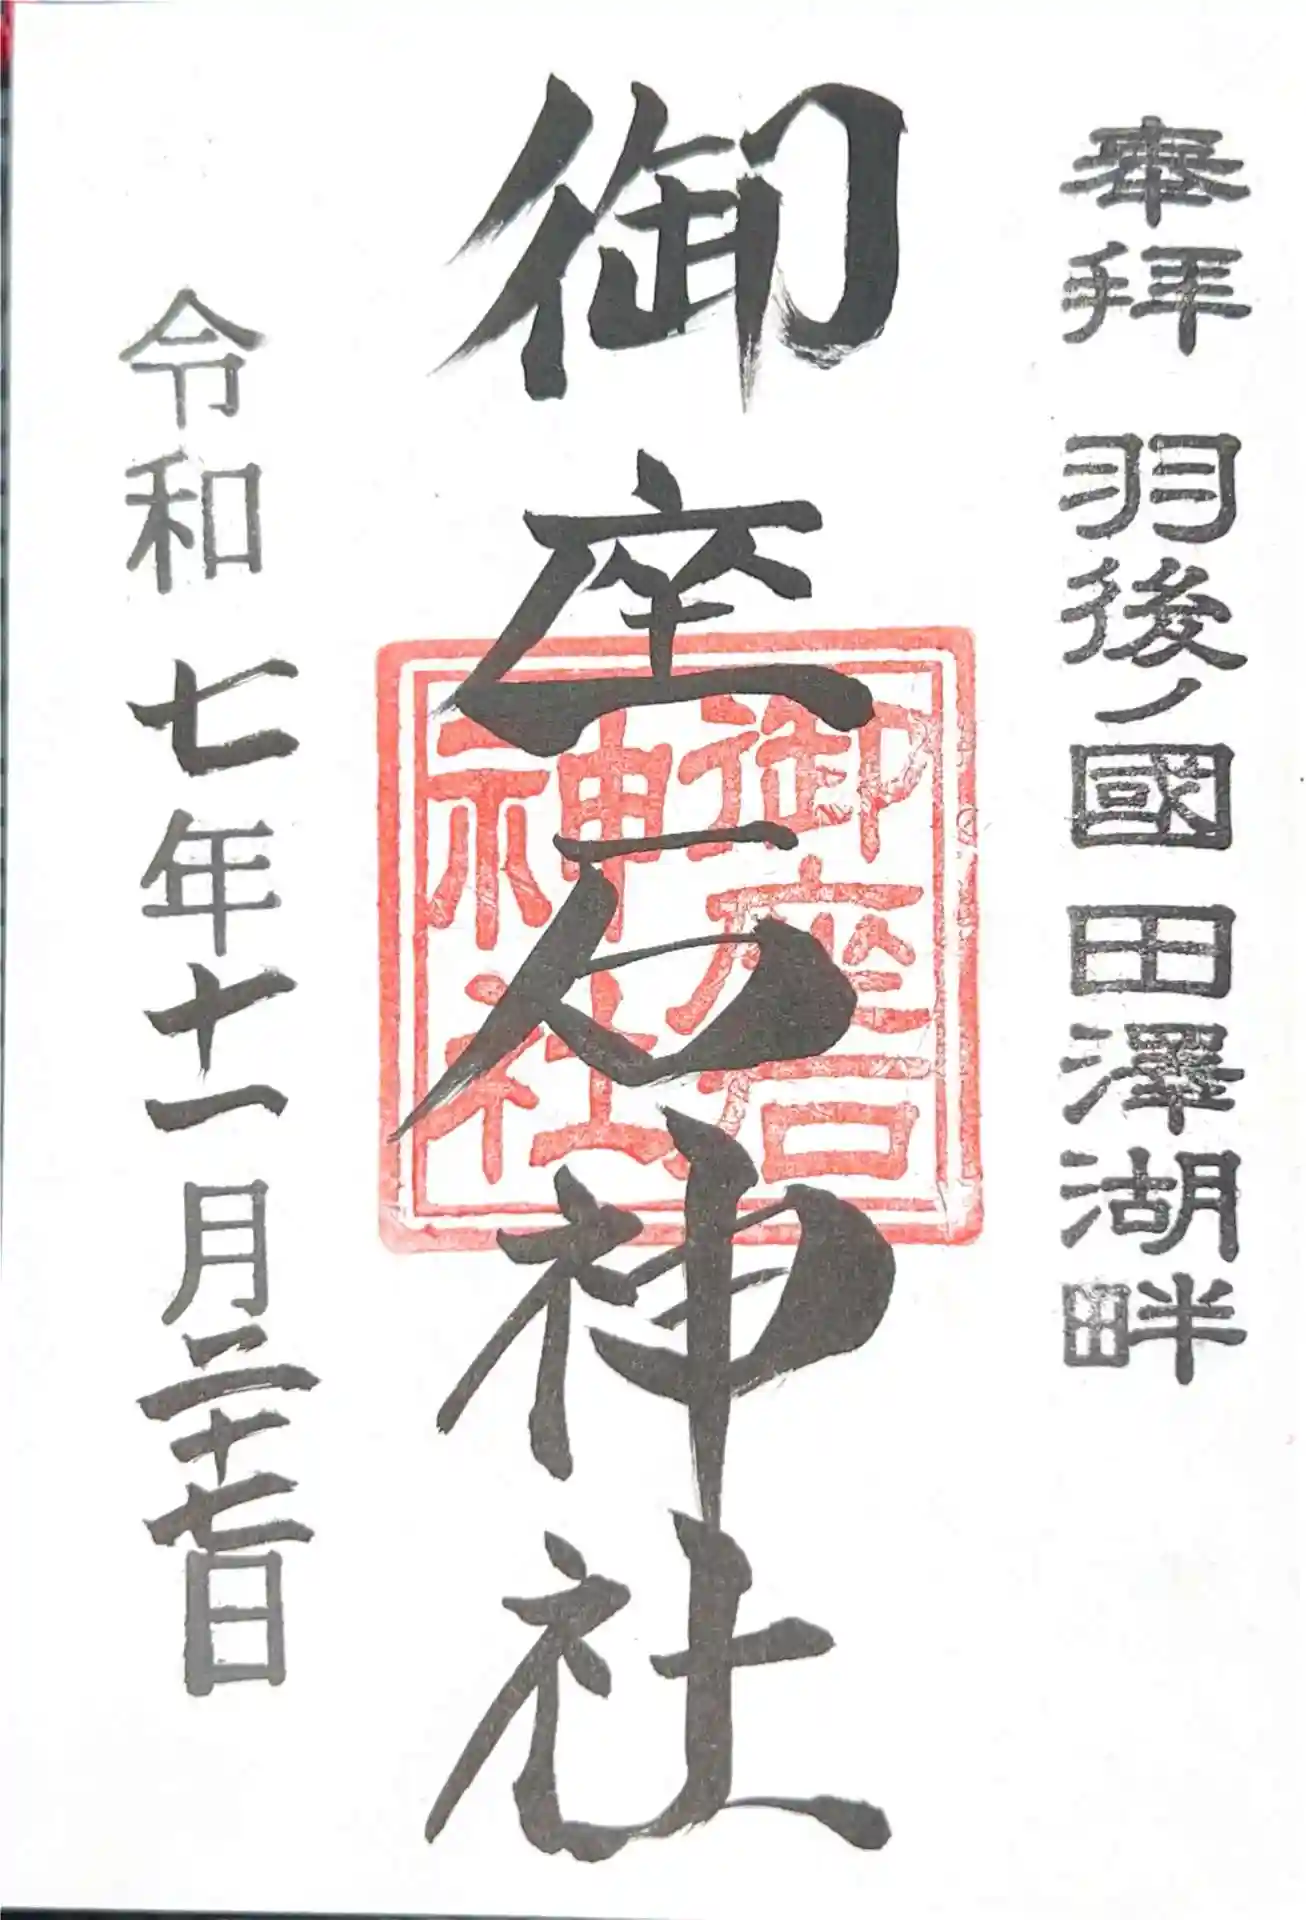 奉拝 羽後ノ國 田澤湖畔
御座石神社
御座石
神社
令和七年十一月二十七日